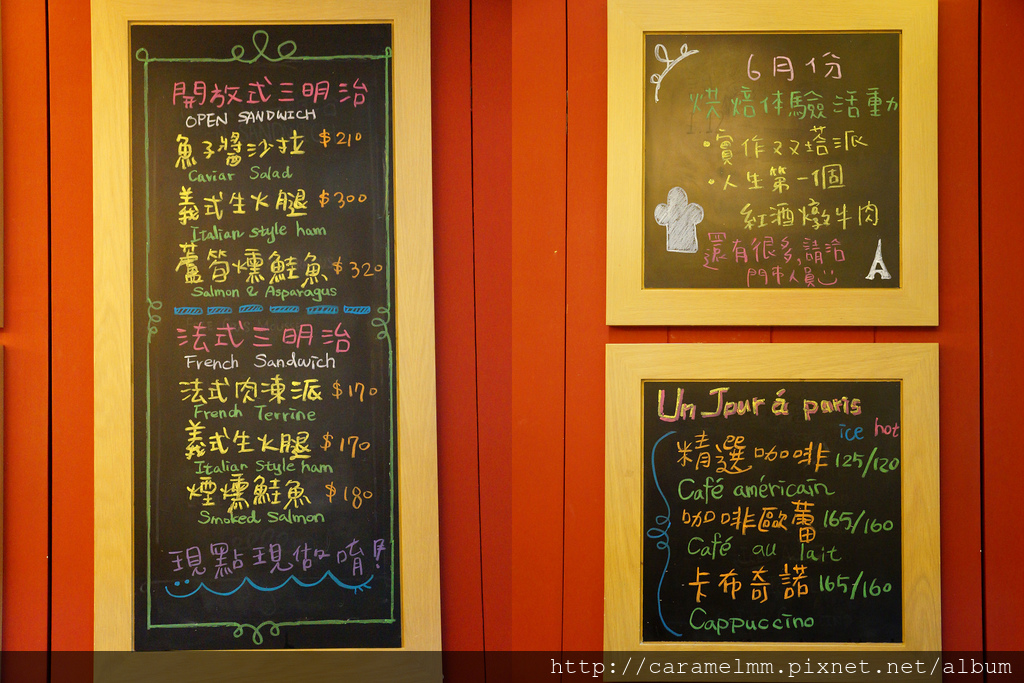 開放式三明治
OPEN SANDWICH
魚子醬沙拉 $210
Caviar Salad
義式生火腿 $300
Italian style ham
蘆筍燻鮭魚 $320
Salmon & Asparagus
法式三明治
French Sandwich
法式肉凍派 $170
French Terrine
義式生火腿 $170
Italian style ham
煙燻鮭魚 $180
Smoked Salmon
現點現做唷!
6月份
烘焙体驗活動
·實作双塔派
·人生第一個
紅酒燉牛肉
還有很多,請洽
門市人員
Un Jour á paris
ice hot
精選咖啡 125/120
Café américain
咖啡歐蕾 165/160
Café au lait
卡布奇諾 165/160
Cappuccino
http://caramelmm.pixnet.net/album